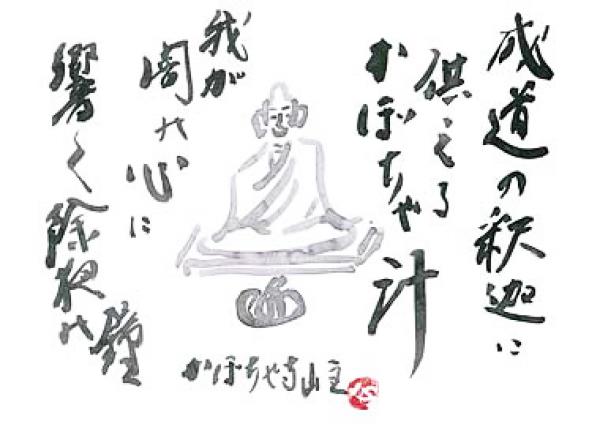 成道の釈迦に
供える
かぼちゃ汁
我が
闇の心に
響く除夜の鐘
かぼちゃ寺山主